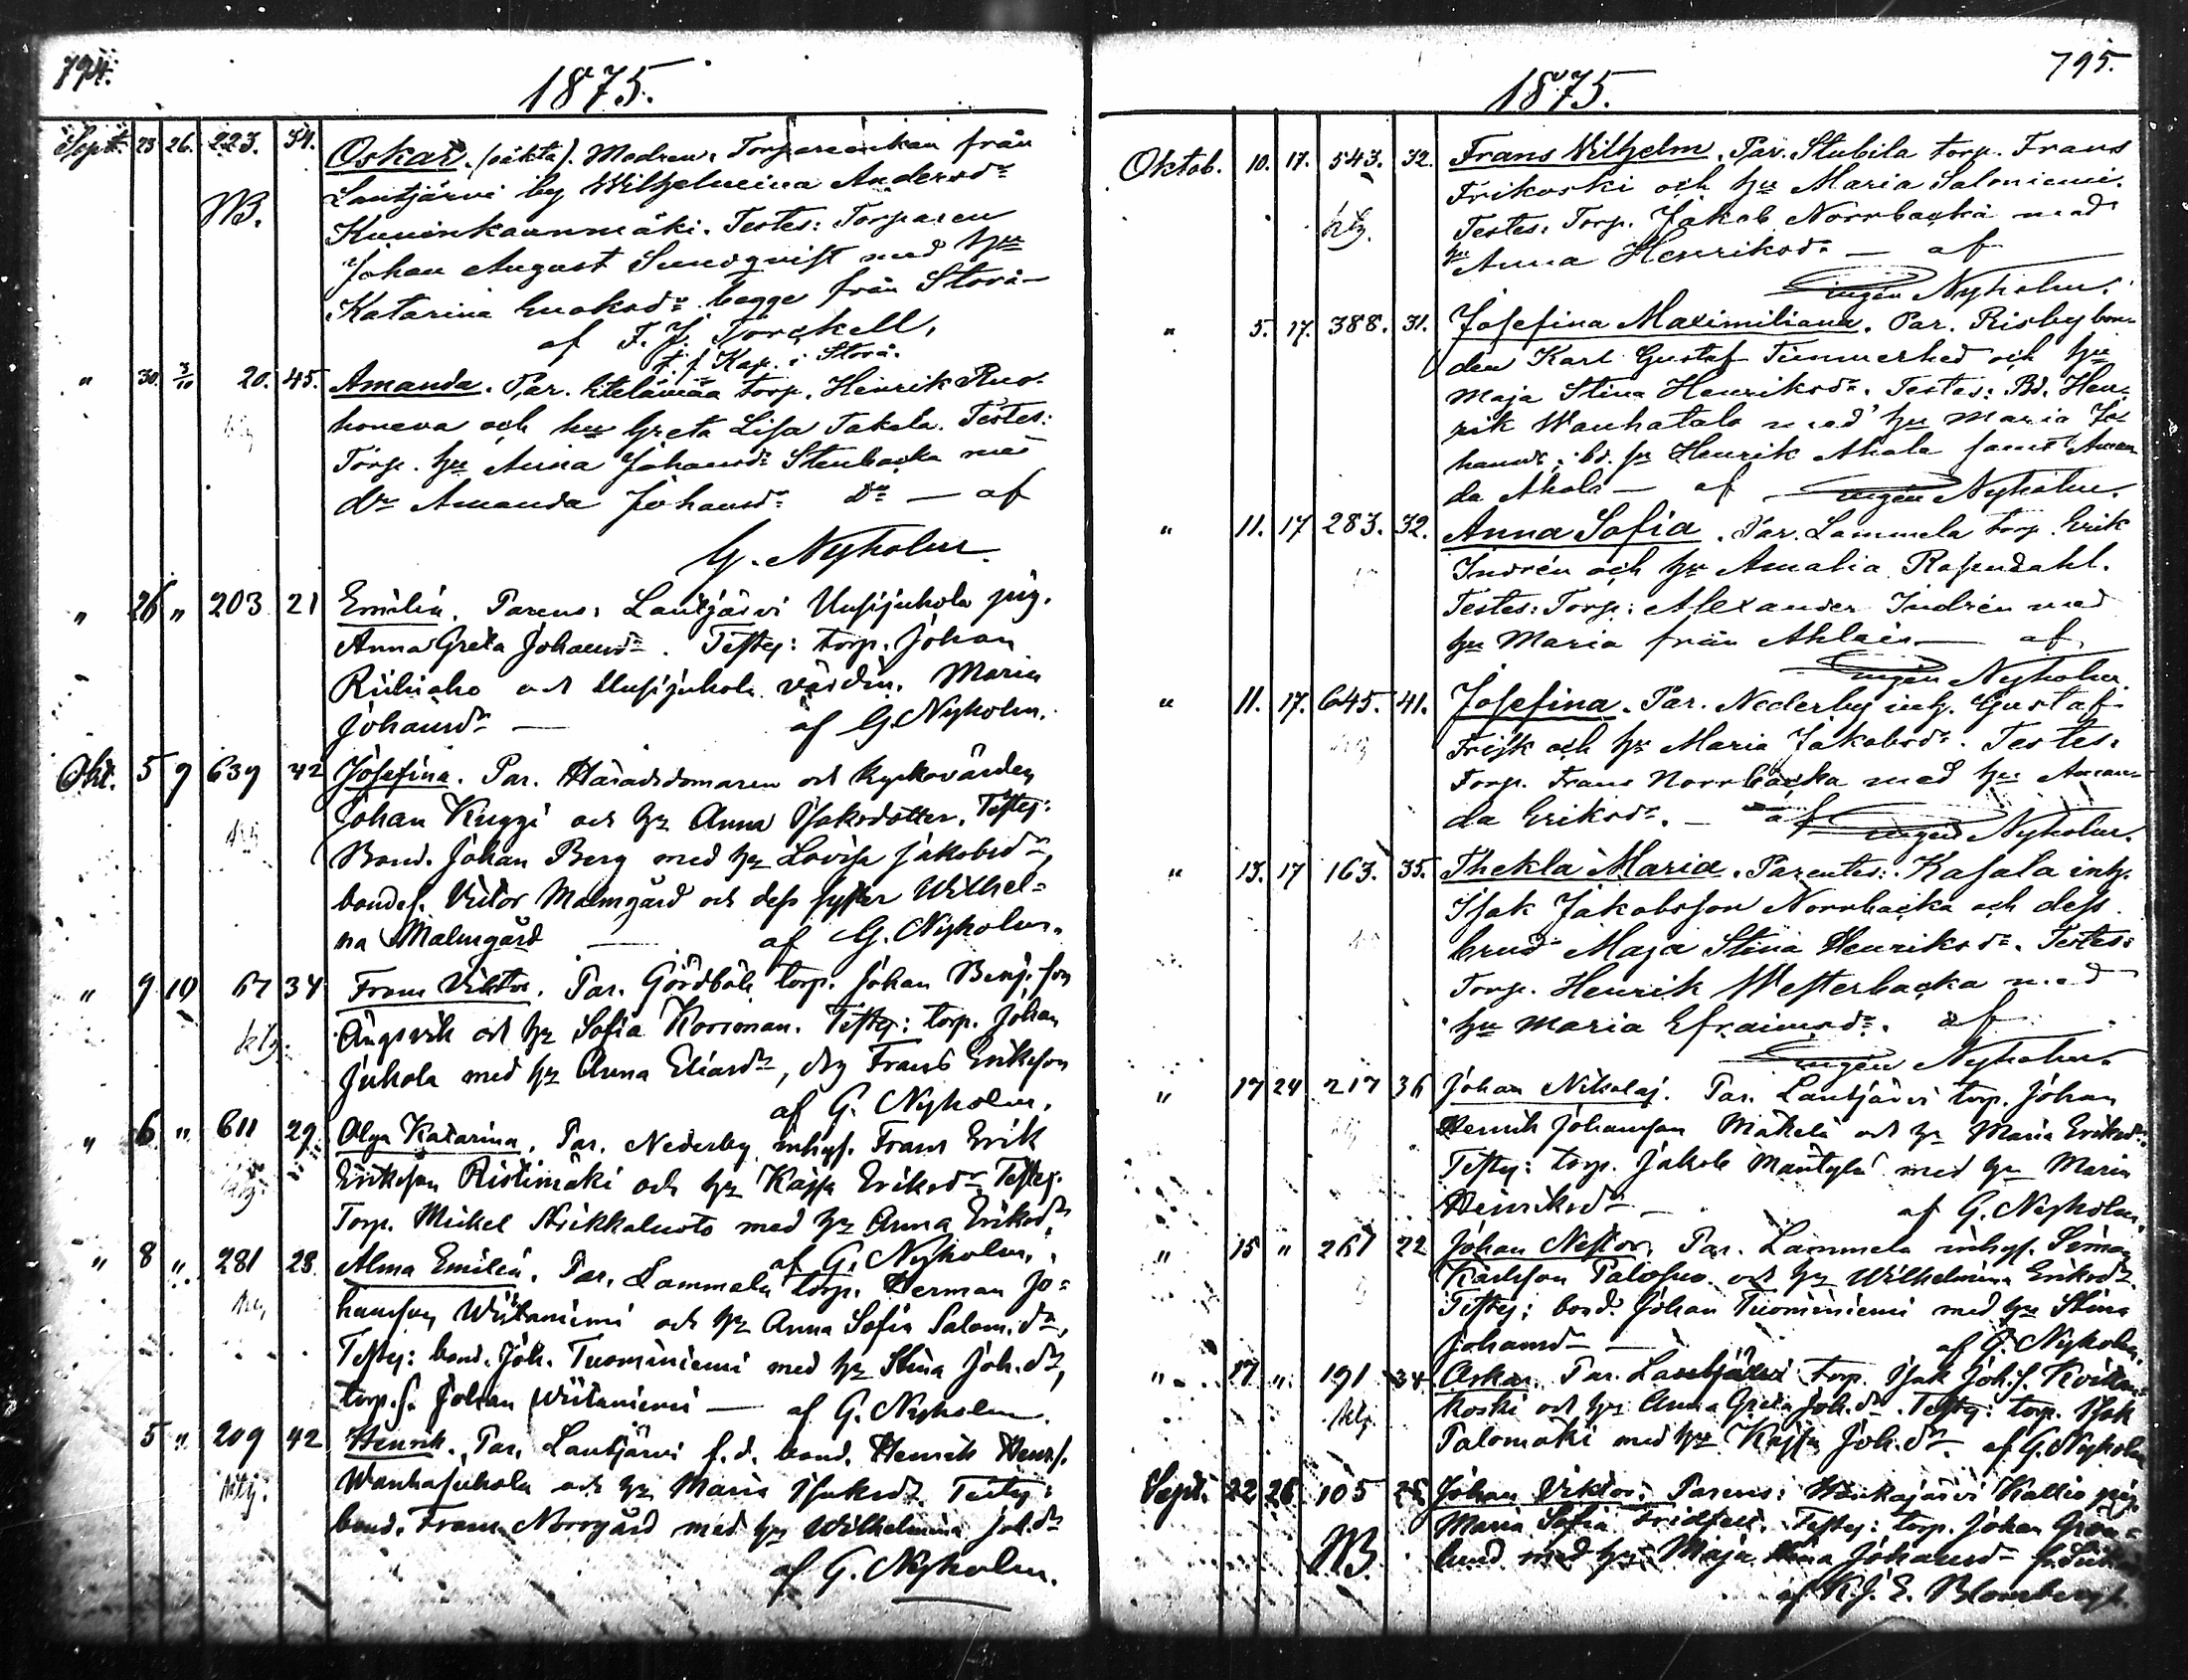 794.
1875.
Sept. 23 26. 223. 34. Oskar. (oäkta). Modren: Torpareenkan från
NB. Lautjärvi by Wilhelmina Andersdr
Kuninkaanmäki. Testes: Torparen
Johan August Sundqvist med hu
Katarina Enoksdr begge från Storå—
af F. J. Törckell,
t. f. Kap. i Storå.
" 30. 3/10 20. 45. Amanda. Par. torp. Henrik Ruo-
honeva och hu Greta Lisa Takala. Testes:
Torp. hu Anna Johansdr Stenbacka med
dr Amanda Johansdr Dr — af
G. Nyholm
" 26 " 203 21 Emilia. Parens: Lautjärvi Uusijuhola pig.
Anna Greta Johansdr. Testes: torp. Johan
Riihiaho och Uusijuhola värdin. Maria
Johansdr — af G. Nyholm.
Okt. 5 9 639 42 Josefina. Par. Häradsdomaren och Kyrkovärden
Johan Knuggi och hr Anna Isaksdotter. Testes:
Bond. Johan Berg med hr Lovisa Jakobsdr,
bondes. Victor Malmgård och dess syster Wilhel-
na Malmgård — af G. Nyholm.
" 9 10 67 34 Frans Viktor. Par. torp. Johan Benj. son
klg. Ängsvik och hr Sofia Korsman. Testes: torp. Johan
Juhola med hr Anna Eliasdr, drg Frans Erikson
af G. Nyholm.
" 6 " 611 29. Olga Katarina. Par. Nederby inhys. Frans Erik
Erikson Ristimäki och hr Kajsa Eriksdr. Testes.
Torp. Mickel med hr Anna Eriksdr.
af G. Nyholm.
" 8 " 281 28 Alma Emilia. Par. Lammela torp. Herman Jo-
hanson Wiitaniemi och hr Anna Sofia Salom.dr,
Testes: bond. Joh. Tuominiemi med hr Stina Joh.dr,
torp.s. Johan Wiitaniemi — af G. Nyholm.
5 " 209 42 Henrik. Par. Lautjärvi f.d. bond. Henrik Henr.s.
Wanhajuhola och hr Maria Isaksdr. Testes:
bond. Frans Norrgård med hr Wilhelmina Joh.dr
af G. Nyholm.
795.
1875.
Oktob. 10. 17. 543. 32. Frans Vilhelm. Par. Stubila torp. Frans
klg. Frikoski och hu Maria Saloniemi.
Testes: Torp. Jakob Norrbacka med
hu Anna Henriksdr — af
ingen Nyholm.
" 5. 17. 388. 31. Josefina Maximiliana. Par. Risby bon-
den Karl Gustaf Timmerhed och hu
Maja Stina Henriksdr. Testes: Bd. Hen-
rik Wanhatalo med hu Maria Jo-
hansdr; bd. sn Henrik Ahola samt Aman
da Ahola — af ingen Nyholm.
" 11. 17 283. 32. Anna Sofia. Par. Lammela torp. Erik
Indrén och hu Amalia Rosendahl.
Testes: Torp: Alexander Indrén med
hu Maria från Ahlais — af
ingen Nyholm.
" 11. 17. 645. 41. Josefina. Par. Nederby inh. Gustaf
Frisk och hu Maria Jakobsdr. Testes:
Torp. Frans Norrbacka med hu Aman-
da Eriksdr. — af ingen Nyholm.
" 13. 17 163. 35. Thekla Maria. Parentes: Kasala inh.
Isak Jakobsson Norrbacka och dess
brud Maja Stina Henriksdr. Testes:
Torp. Henrik Westerbacka med
hu Maria Efraimsdr. af
ingen Nyholm.
" 17 24 217 36 Johan Nikolaj. Par. Lautjärvi torp. Johan
Henrik Johanson Mäkelä och hr Maria Eriksdr.
Testes: torp. Jakob Mäntylä med hr Maria
Henriksdr — af G. Nyholm.
" 15 " 261 22 Johan Nestor. Par. Lammela inhys. Simon
Karlsson och hr Wilhelmina Eriksdr.
Testes: bond. Johan Tuominiemi med hr Stina
Johansdr — af G. Nyholm.
" 17 " 191 34 Oskar. Par. Lautjärvi torp. Isak Joh.s.
koski och hr Anna Greta Joh.dr. Testes: torp. Isak
Palomäki med hr Kajsa Joh.dr. af G. Nyholm
Sept. 22 26 105 Johan Viktor. Parens: Kallio pig.
NB. Maria Sofia. Testes: torp. Johan Grön-
lund med hr Maja Johansdr
af K. J. E. Blomberg.